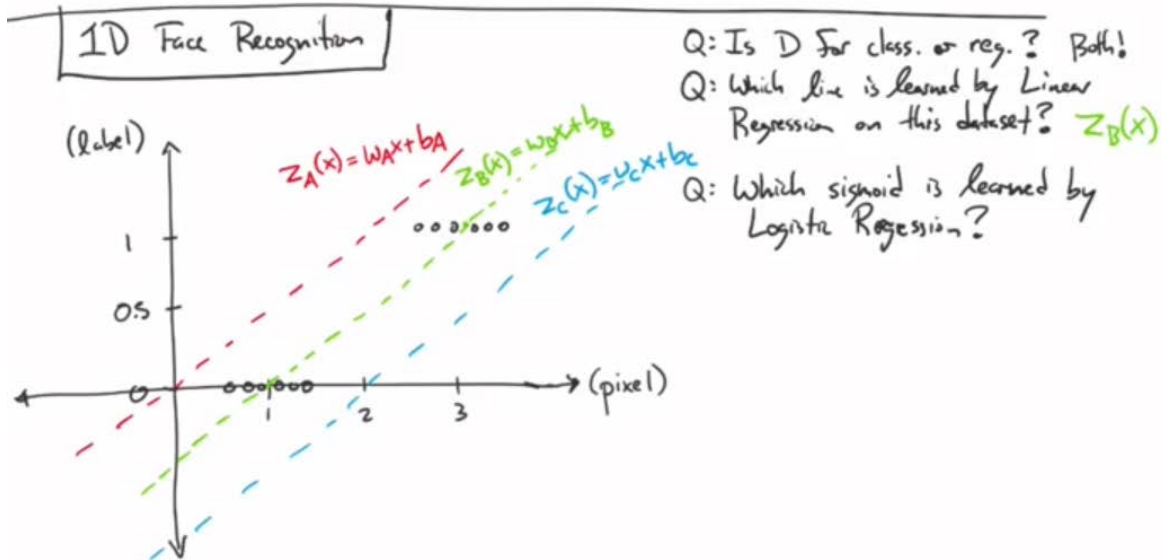 1D Face Recognition
Q: Is D for class. or reg.? Both!
Q: Which line is learned by Linear
Regression on this dataset? z_B(x)
Q: Which sigmoid is learned by
Logistic Regression?
(label)
z_A(x) = w_A x + b_A
z_B(x) = w_B x + b_B
z_C(x) = w_C x + b_C
1
0.5
0
1
2
3
(pixel)